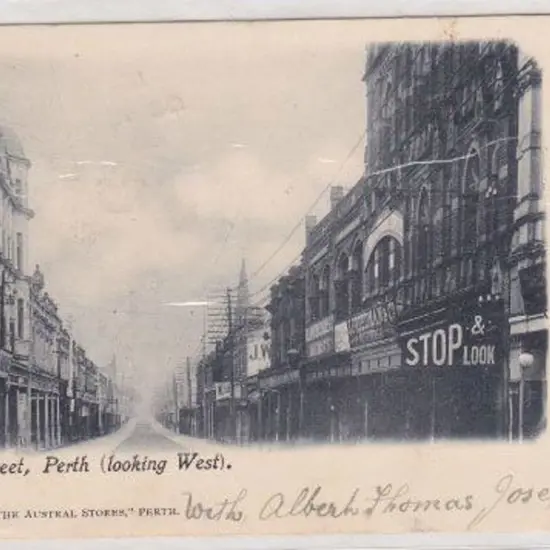 J.W
STOP & LOOK
eet, Perth (looking West).
THE AUSTRAL STORES," PERTH.
With Albert Thomas Jose